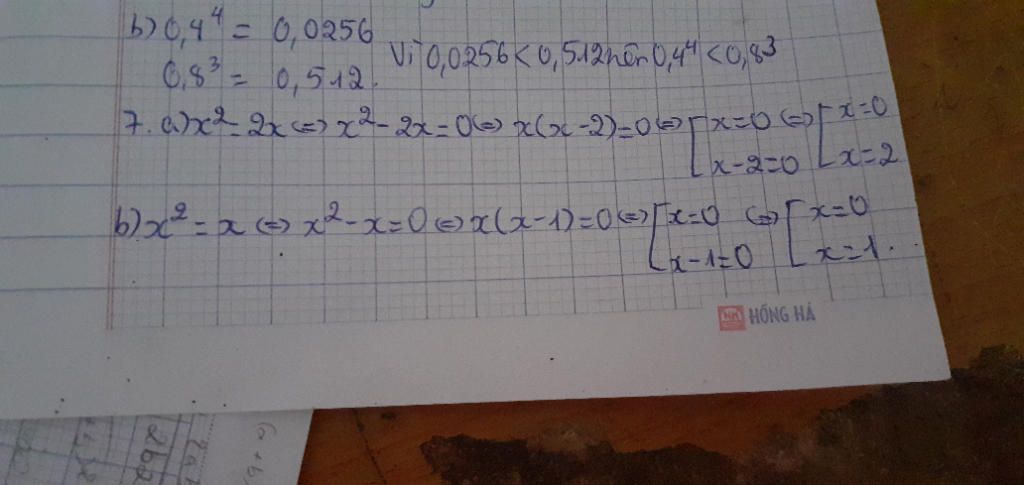 b) 0,4⁴ = 0,0256
0,8³ = 0,512. Vì 0,0256 < 0,512 nên 0,4⁴ < 0,8³
7. a) x² = 2x ⇔ x² - 2x = 0 ⇔ x(x - 2) = 0 ⇔ [ x = 0 ⇔ [ x = 0
x - 2 = 0 x = 2
b) x² = x ⇔ x² - x = 0 ⇔ x(x - 1) = 0 ⇔ [ x = 0 ⇔ [ x = 0
x - 1 = 0 x = 1.
HỒNG HÀ